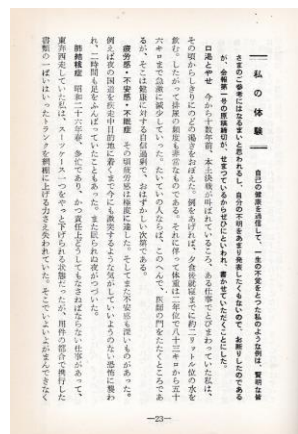 私の体験
自己の健康を過信して、一生の不覚をとった私のような例は、賢明な皆
さまのご参考にはなるまいと思われるし、自分の不明をあまり発表したくもないので、お断りしたのである
が、会報第一号の原稿締切が、せまっているからぜひにといわれ、書かせていただくことにした。
口渇とやせ 今から十数年前、本土決戦が叫ばれているころ、ある仕事でとびまわっていた私は、
その頃からしきりにのどの渇きをおぼえた。例をあげれば、夕食後就寝までに約二リットル位の水を
飲む。したがって排尿の頻度も非常なものである。それに伴って体重は二年位で八十三キロから五十
六キロまで急激に減少していった。たいていの人ならば、このへんで、医師の門をたたくところであ
るが、そこは健康に対する自信過剰で、おはずかしい次第である。
疲労感・不安感・不眠症 その頃疲労感は極度に達した。そしてまた不安感も強いものがあった。
例えば夜の国道を疾走中目的地に着くまで今にも衝突するような気がしていいようのない恐怖に襲わ
れ、二時間も足をふんばっていたこともあった。また眠られぬ夜がつづいた。
肺結核症 昭和二十六年春、多忙であり、かつ責任上どうしてもなさねばならない仕事があって、
東奔西走していた私は、スーツケース一つをやっと下げられる状態だったが、用件の都合で携行した
書類の一ぱいはいったトランクを網棚に上げる力さえ失われていた。そこでいよいよがまんできなく
—23—